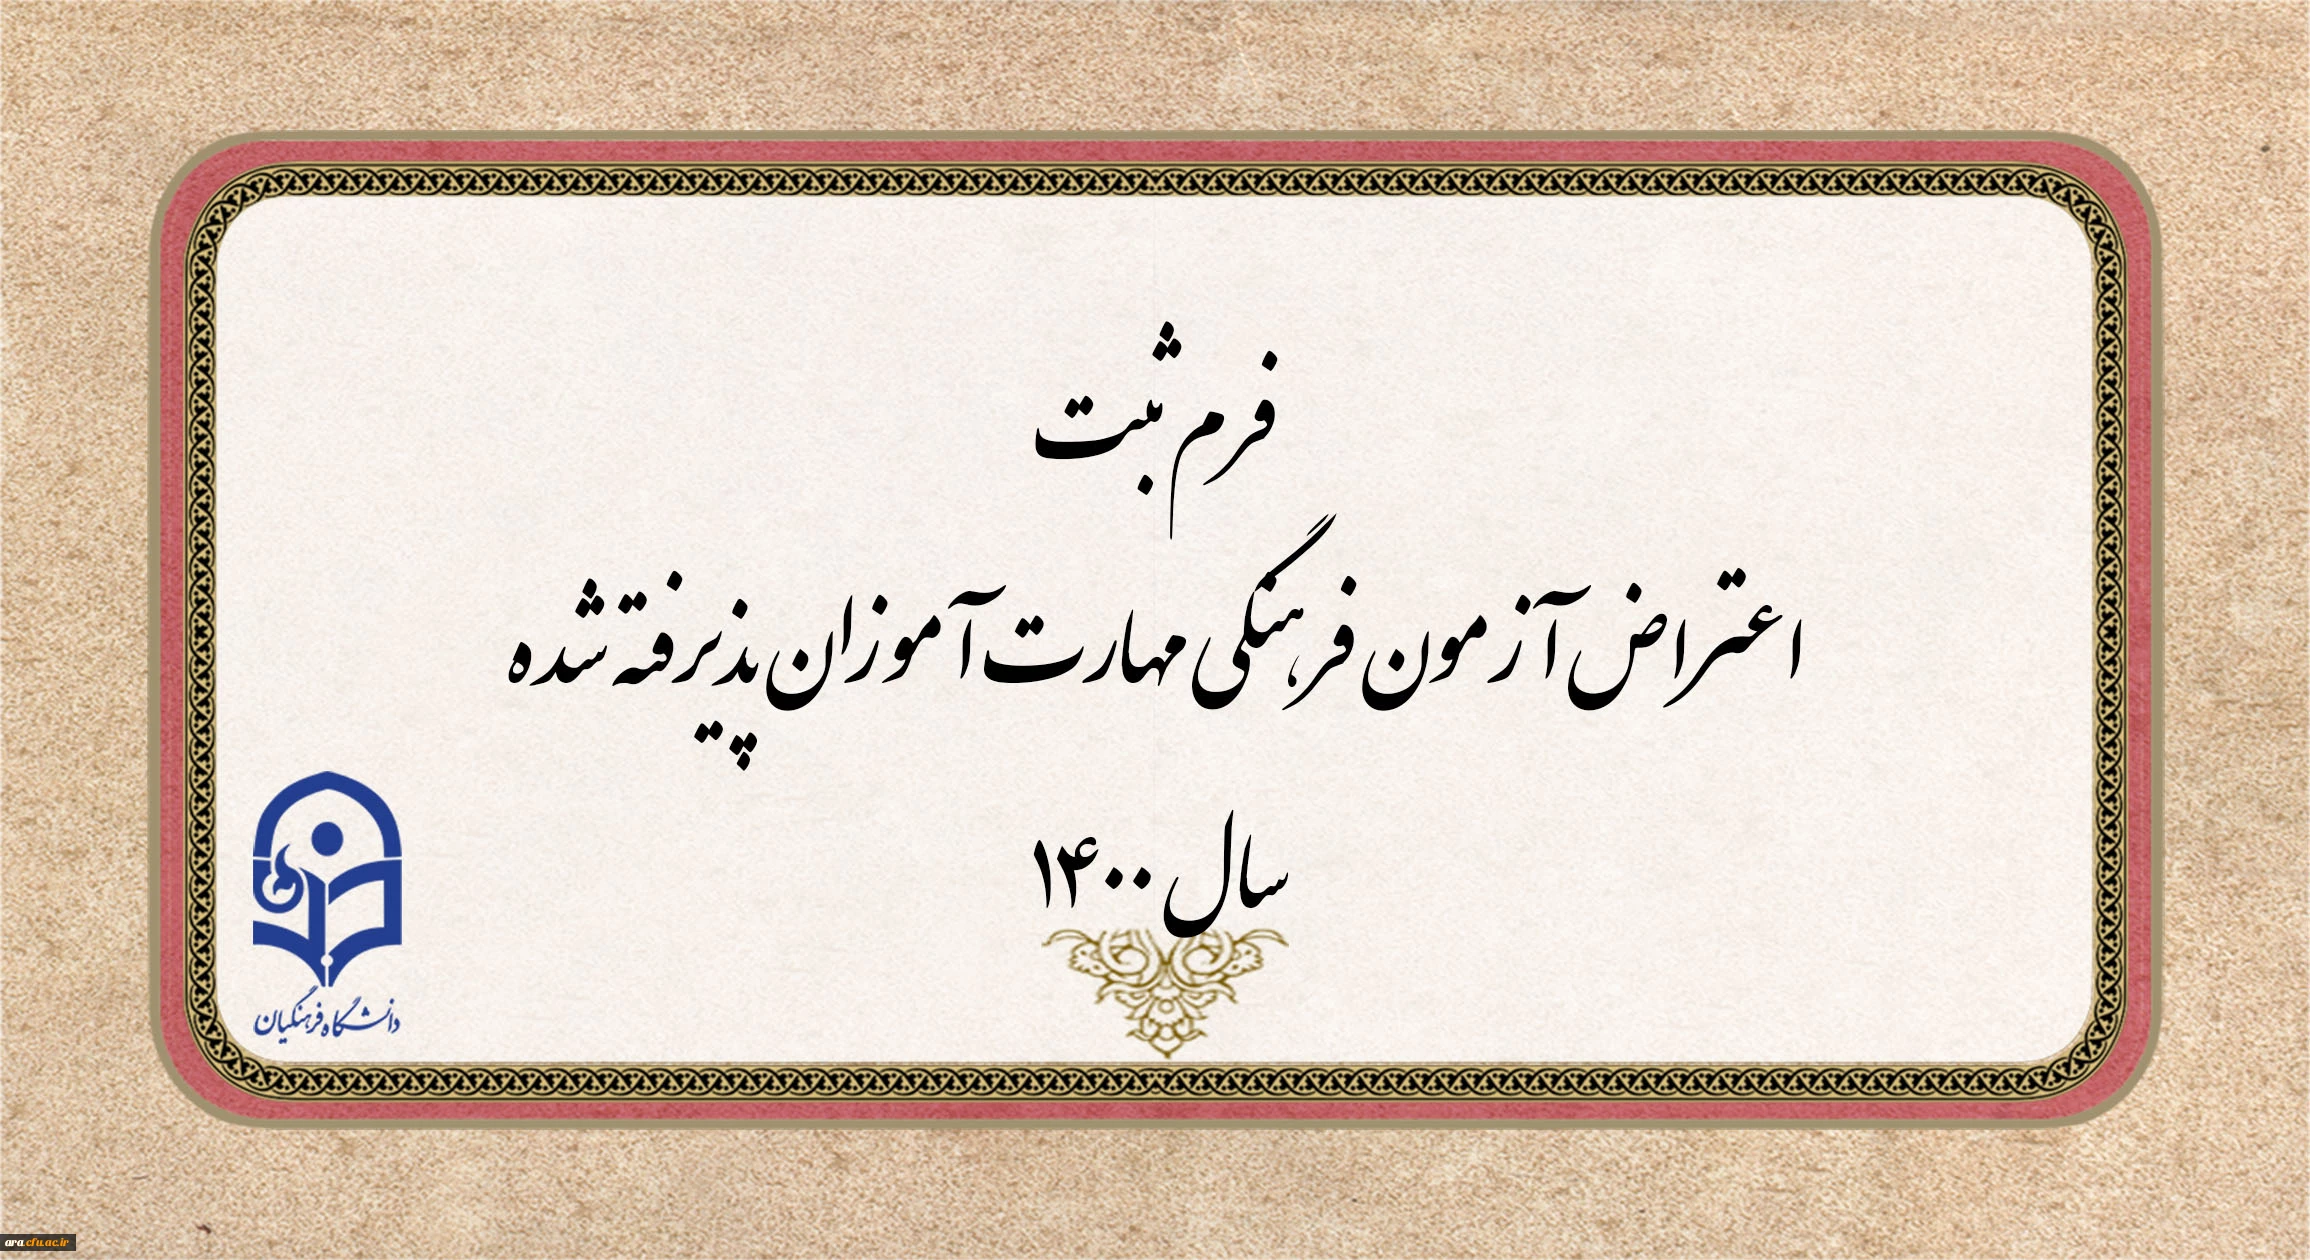 فرم ثبت
اعتراض آزمون فرهنگی مهارت آموزان پذیرفته شده
سال ۱۴۰۰
دانشگاه فرهنگیان
ara.cfu.ac.ir